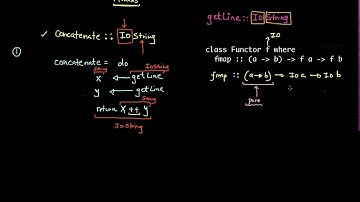 ✓ Concatenate :: IO String
①
concatenate = do
IO String
string
x ← getLine
y ← getLine
string
return x ++ y
IO String
getLine :: IO String
IO
class Functor f where
fmap :: (a -> b) -> f a -> f b
fmp :: (a→b) → IO a → IO b
pure